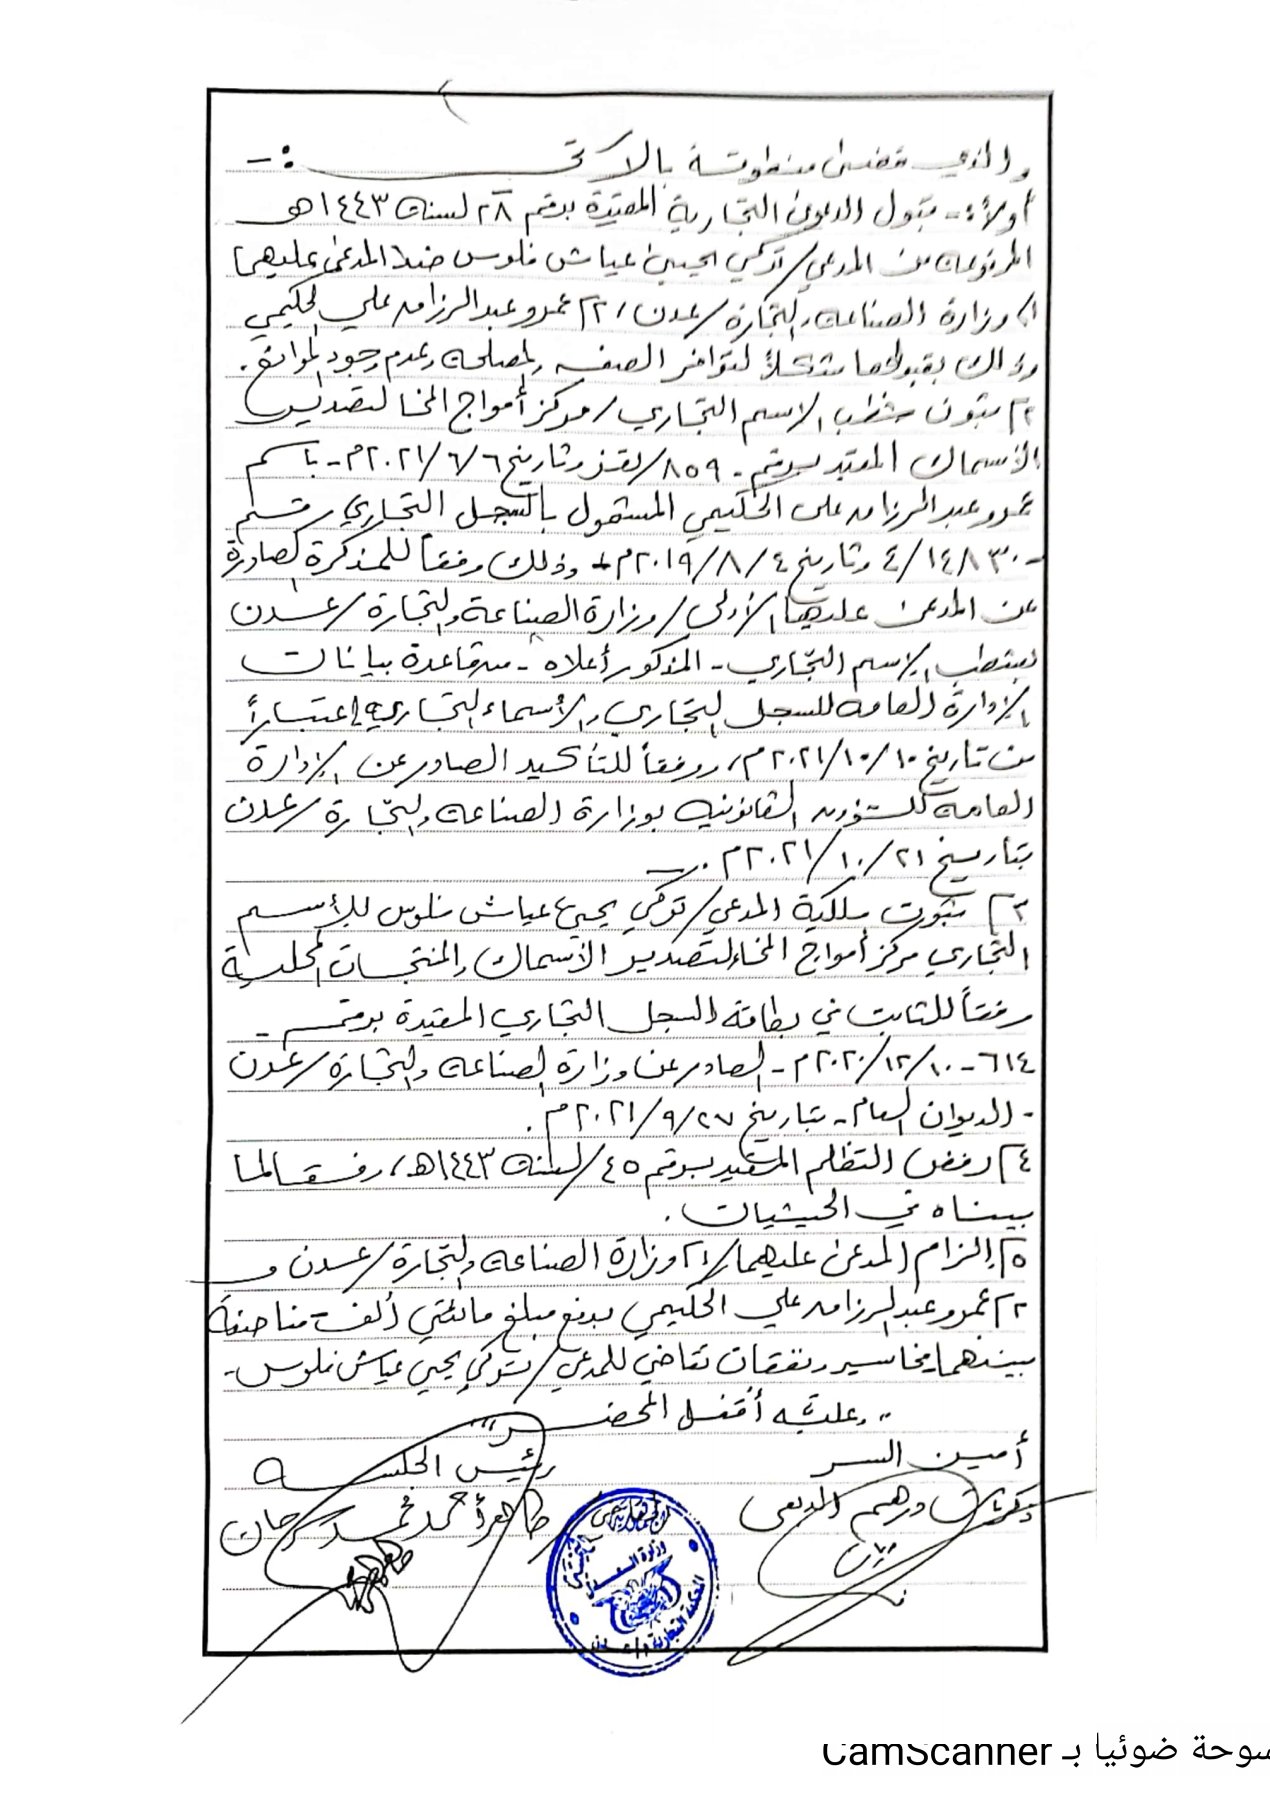 والذي قضى منطوقة بالآتي :-
أولاً :- قبول الدعوى التجارية المقيدة برقم ٢٨ لسنة ١٤٤٣هـ
المرفوعة من المدعي/ تركي يحيى عياش فلوس ضد المدعى عليهما
١) وزارة الصناعة والتجارة/عدن، ٢) عمرو عبدالرزاق علي الحكيمي
وذلك بقبولها شكلاً لتوافر الصفة والمصلحة وعدم وجود الموانع.
٢) ثبوت شطب الاسم التجاري/ مركز أمواج المخا لتصدير
الأسماك المقيد برقم - ٨٥٩/ وتاريخ ٦/٦/٢٠٢١م - باسم
عمرو عبدالرزاق علي الحكيمي المشمول بالسجل التجاري رقم
- ٤/١٤٨٣٠ وتاريخ ٤/٨/٢٠١٩م - وذلك وفقاً للمذكرة الصادرة
عن المدعى عليها الأولى/ وزارة الصناعة والتجارة/عدن
بشطب الاسم التجاري - المذكور أعلاه - من قاعدة بيانات
الإدارة العامة للسجل التجاري والأسماء التجارية إعتباراً
من تاريخ ١٠/١٠/٢٠٢١م، ووفقاً للتأكيد الصادر عن الإدارة
العامة للشؤون القانونية بوزارة الصناعة والتجارة/عدن
بتاريخ ٢١/١٠/٢٠٢١م.
٣) ثبوت ملكية المدعي/ تركي يحيى عياش فلوس للإسم
التجاري مركز أمواج المخا لتصدير الأسماك والمنتجات المحلية
وفقاً للثابت في بطاقة السجل التجاري المقيدة برقم -
٦١٤ - ١٠/١٢/٢٠٢٠م - الصادر عن وزارة الصناعة والتجارة/عدن
- الديوان العام - بتاريخ ٢٧/٩/٢٠٢١م.
٤) رفض التظلم المقيد برقم ٤٥/لسنة ١٤٤٣هـ، وفقاً لما
بيناه في الحيثيات.
٥) إلزام المدعى عليهما/ ١) وزارة الصناعة والتجارة/عدن و
٢) عمرو عبدالرزاق علي الحكيمي بدفع مبلغ مائتي ألف مناصفة
بينهما مخاسير ونفقات تقاضي للمدعي/ تركي يحيى عياش فلوس.
،، وعليه أقفل المحضر ،،،
أمين السر
رئيس الجلسة
طاهر أحمد محمد سرحان
وزارة العدل
المحكمة التجارية
سوحة ضوئيا بـ CamScanner